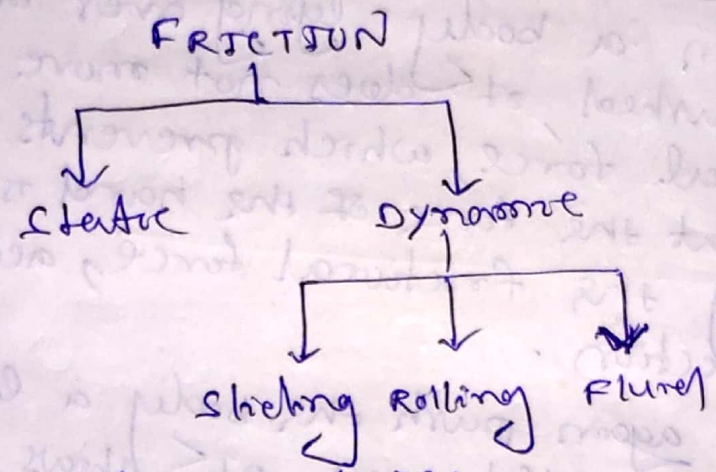 FRICTION
Static Dynamic
Sliding Rolling Fluid